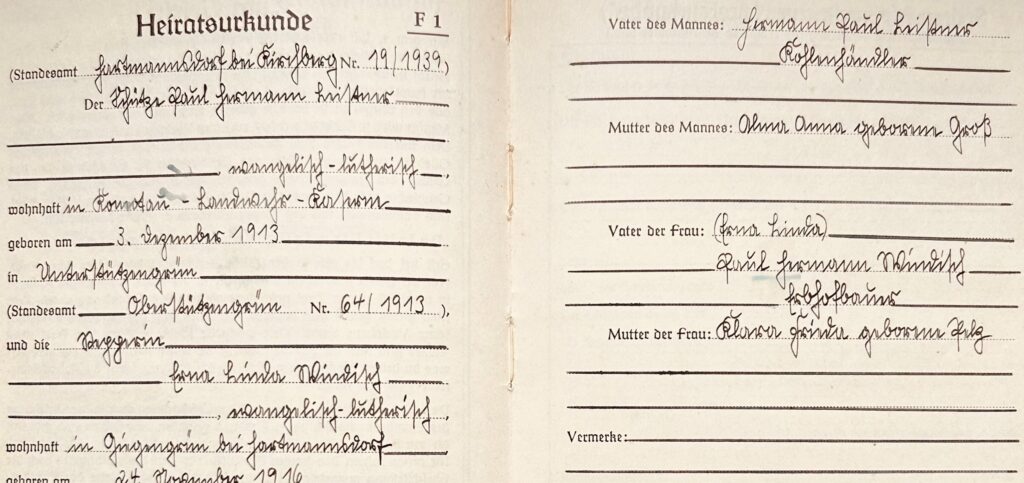 Heiratsurkunde F 1
(Standesamt Hartmannsdorf bei Kirchberg Nr. 19/1939,)
Der Schütze Paul Hermann Leistner
, evangelisch-lutherisch,
wohnhaft in Komotau - Landwehr-Kaserne
geboren am 3. Dezember 1913
in Unterstützengrün
(Standesamt Oberstützengrün Nr. 64/1913 ),
und die Stepperin
Erna Linda Windisch
, evangelisch-lutherisch,
wohnhaft in Giegengrün bei Hartmannsdorf
geboren am 24. November 1916
Vater des Mannes: Hermann Paul Leistner
Kohlenhändler
Mutter des Mannes: Alma Anna geborene Groß
Vater der Frau: (Erna Linda)
Paul Hermann Windisch
Erbhofbauer
Mutter der Frau: Klara Frieda geborene Pelz
Vermerke: